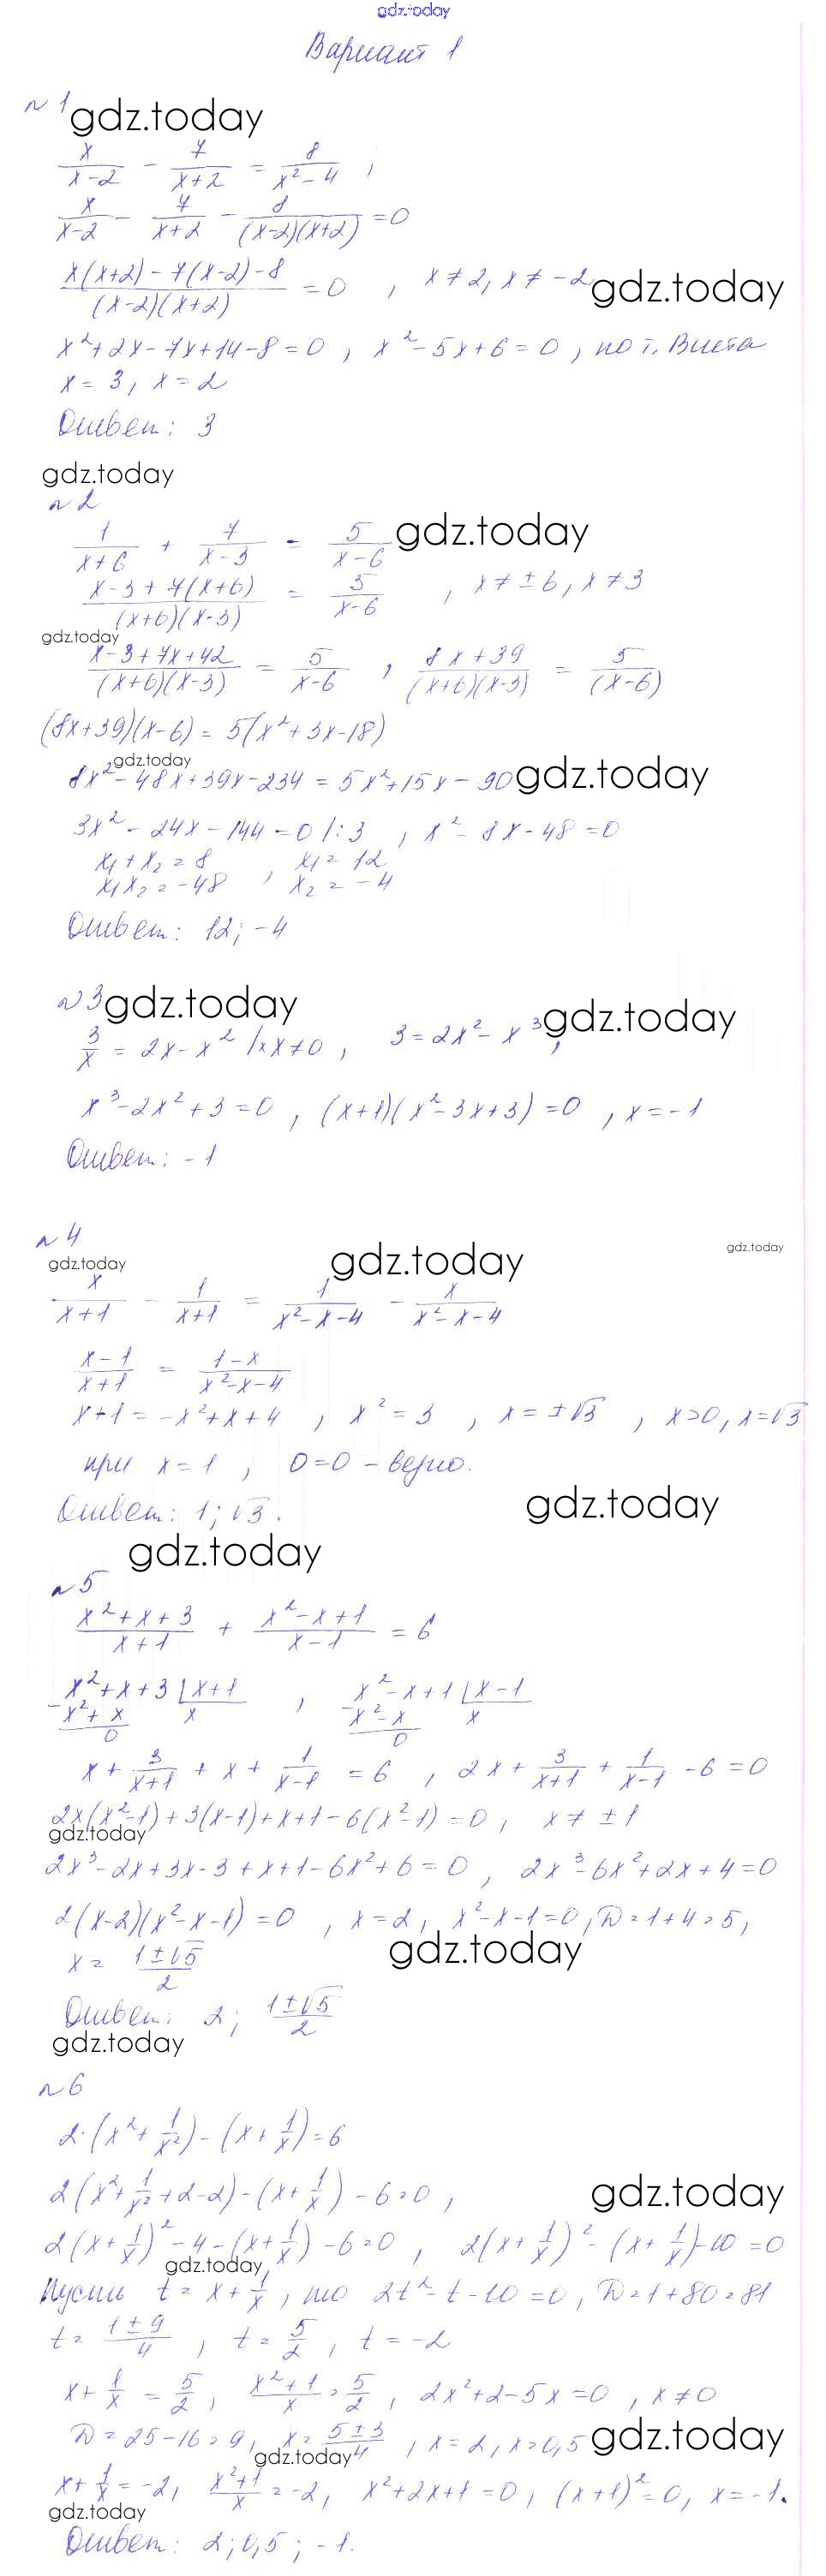 gdz.today
Вариант 1
№1 gdz.today
x/(x-2) - 7/(x+2) = 8/(x²-4) ,
x/(x-2) - 7/(x+2) - 8/((x-2)(x+2)) = 0
(x(x+2)-7(x-2)-8)/((x-2)(x+2)) = 0 , x≠2, x≠-2 gdz.today
x²+2x-7x+14-8=0 , x²-5x+6=0 , по т. Виета
x=3, x=2
Ответ: 3
gdz.today
№2
1/(x+6) + 7/(x-3) = 5/(x-6) gdz.today
(x-3+7(x+6))/((x+6)(x-3)) = 5/(x-6) , x≠±6, x≠3
gdz.today
(x-3+7x+42)/((x+6)(x-3)) = 5/(x-6) , (8x+39)/((x+6)(x-3)) = 5/(x-6)
(8x+39)(x-6) = 5(x²+3x-18)
gdz.today
8x²-48x+39x-234 = 5x²+15x-90 gdz.today
3x²-24x-144=0 /:3 , x²-8x-48=0
x₁+x₂=8 , x₁=12
x₁x₂=-48 , x₂=-4
Ответ: 12; -4
№3 gdz.today
3/x = 2x-x² /·x x≠0 , 3=2x²-x³ , gdz.today
x³-2x²+3=0 , (x+1)(x²-3x+3)=0 , x=-1
Ответ: -1
№4
gdz.today gdz.today gdz.today
x/(x+1) - 1/(x+1) = 1/(x²-x-4) - x/(x²-x-4)
(x-1)/(x+1) = (1-x)/(x²-x-4)
x+1=-x²+x+4 , x²=3 , x=±√3 , x>0, x=√3
при x=1 , 0=0 - верно.
Ответ: 1; √3. gdz.today
gdz.today
№5
(x²+x+3)/(x+1) + (x²-x+1)/(x-1) = 6
x²+x+3 | x+1 , x²-x+1 | x-1
-x²+x x -x²-x x
0 0
x + 3/(x+1) + x + 1/(x-1) = 6 , 2x + 3/(x+1) + 1/(x-1) - 6 = 0
2x(x²-1)+3(x-1)+x+1-6(x²-1)=0 , x≠±1
gdz.today
2x³-2x+3x-3+x+1-6x²+6=0 , 2x³-6x²+2x+4=0
2(x-2)(x²-x-1)=0 , x=2, x²-x-1=0, D=1+4=5,
x = (1±√5)/2 gdz.today
Ответ: 2; (1±√5)/2
gdz.today
№6
2·(x²+1/x²)-(x+1/x)=6
2(x²+1/x²+2-2)-(x+1/x)-6=0 , gdz.today
2(x+1/x)²-4-(x+1/x)-6=0 , 2(x+1/x)²-(x+1/x)-10=0
gdz.today
Пусть t=x+1/x , то 2t²-t-10=0, D=1+80=81
t=(1±9)/4 , t=5/2 , t=-2
x+1/x=5/2 , (x²+1)/x=5/2 , 2x²+2-5x=0 , x≠0
D=25-16=9, x=(5±3)/4 , x=2, x=0,5 gdz.today
gdz.today
x+1/x=-2, (x²+1)/x=-2, x²+2x+1=0, (x+1)²=0, x=-1.
gdz.today
Ответ: 2; 0,5; -1.